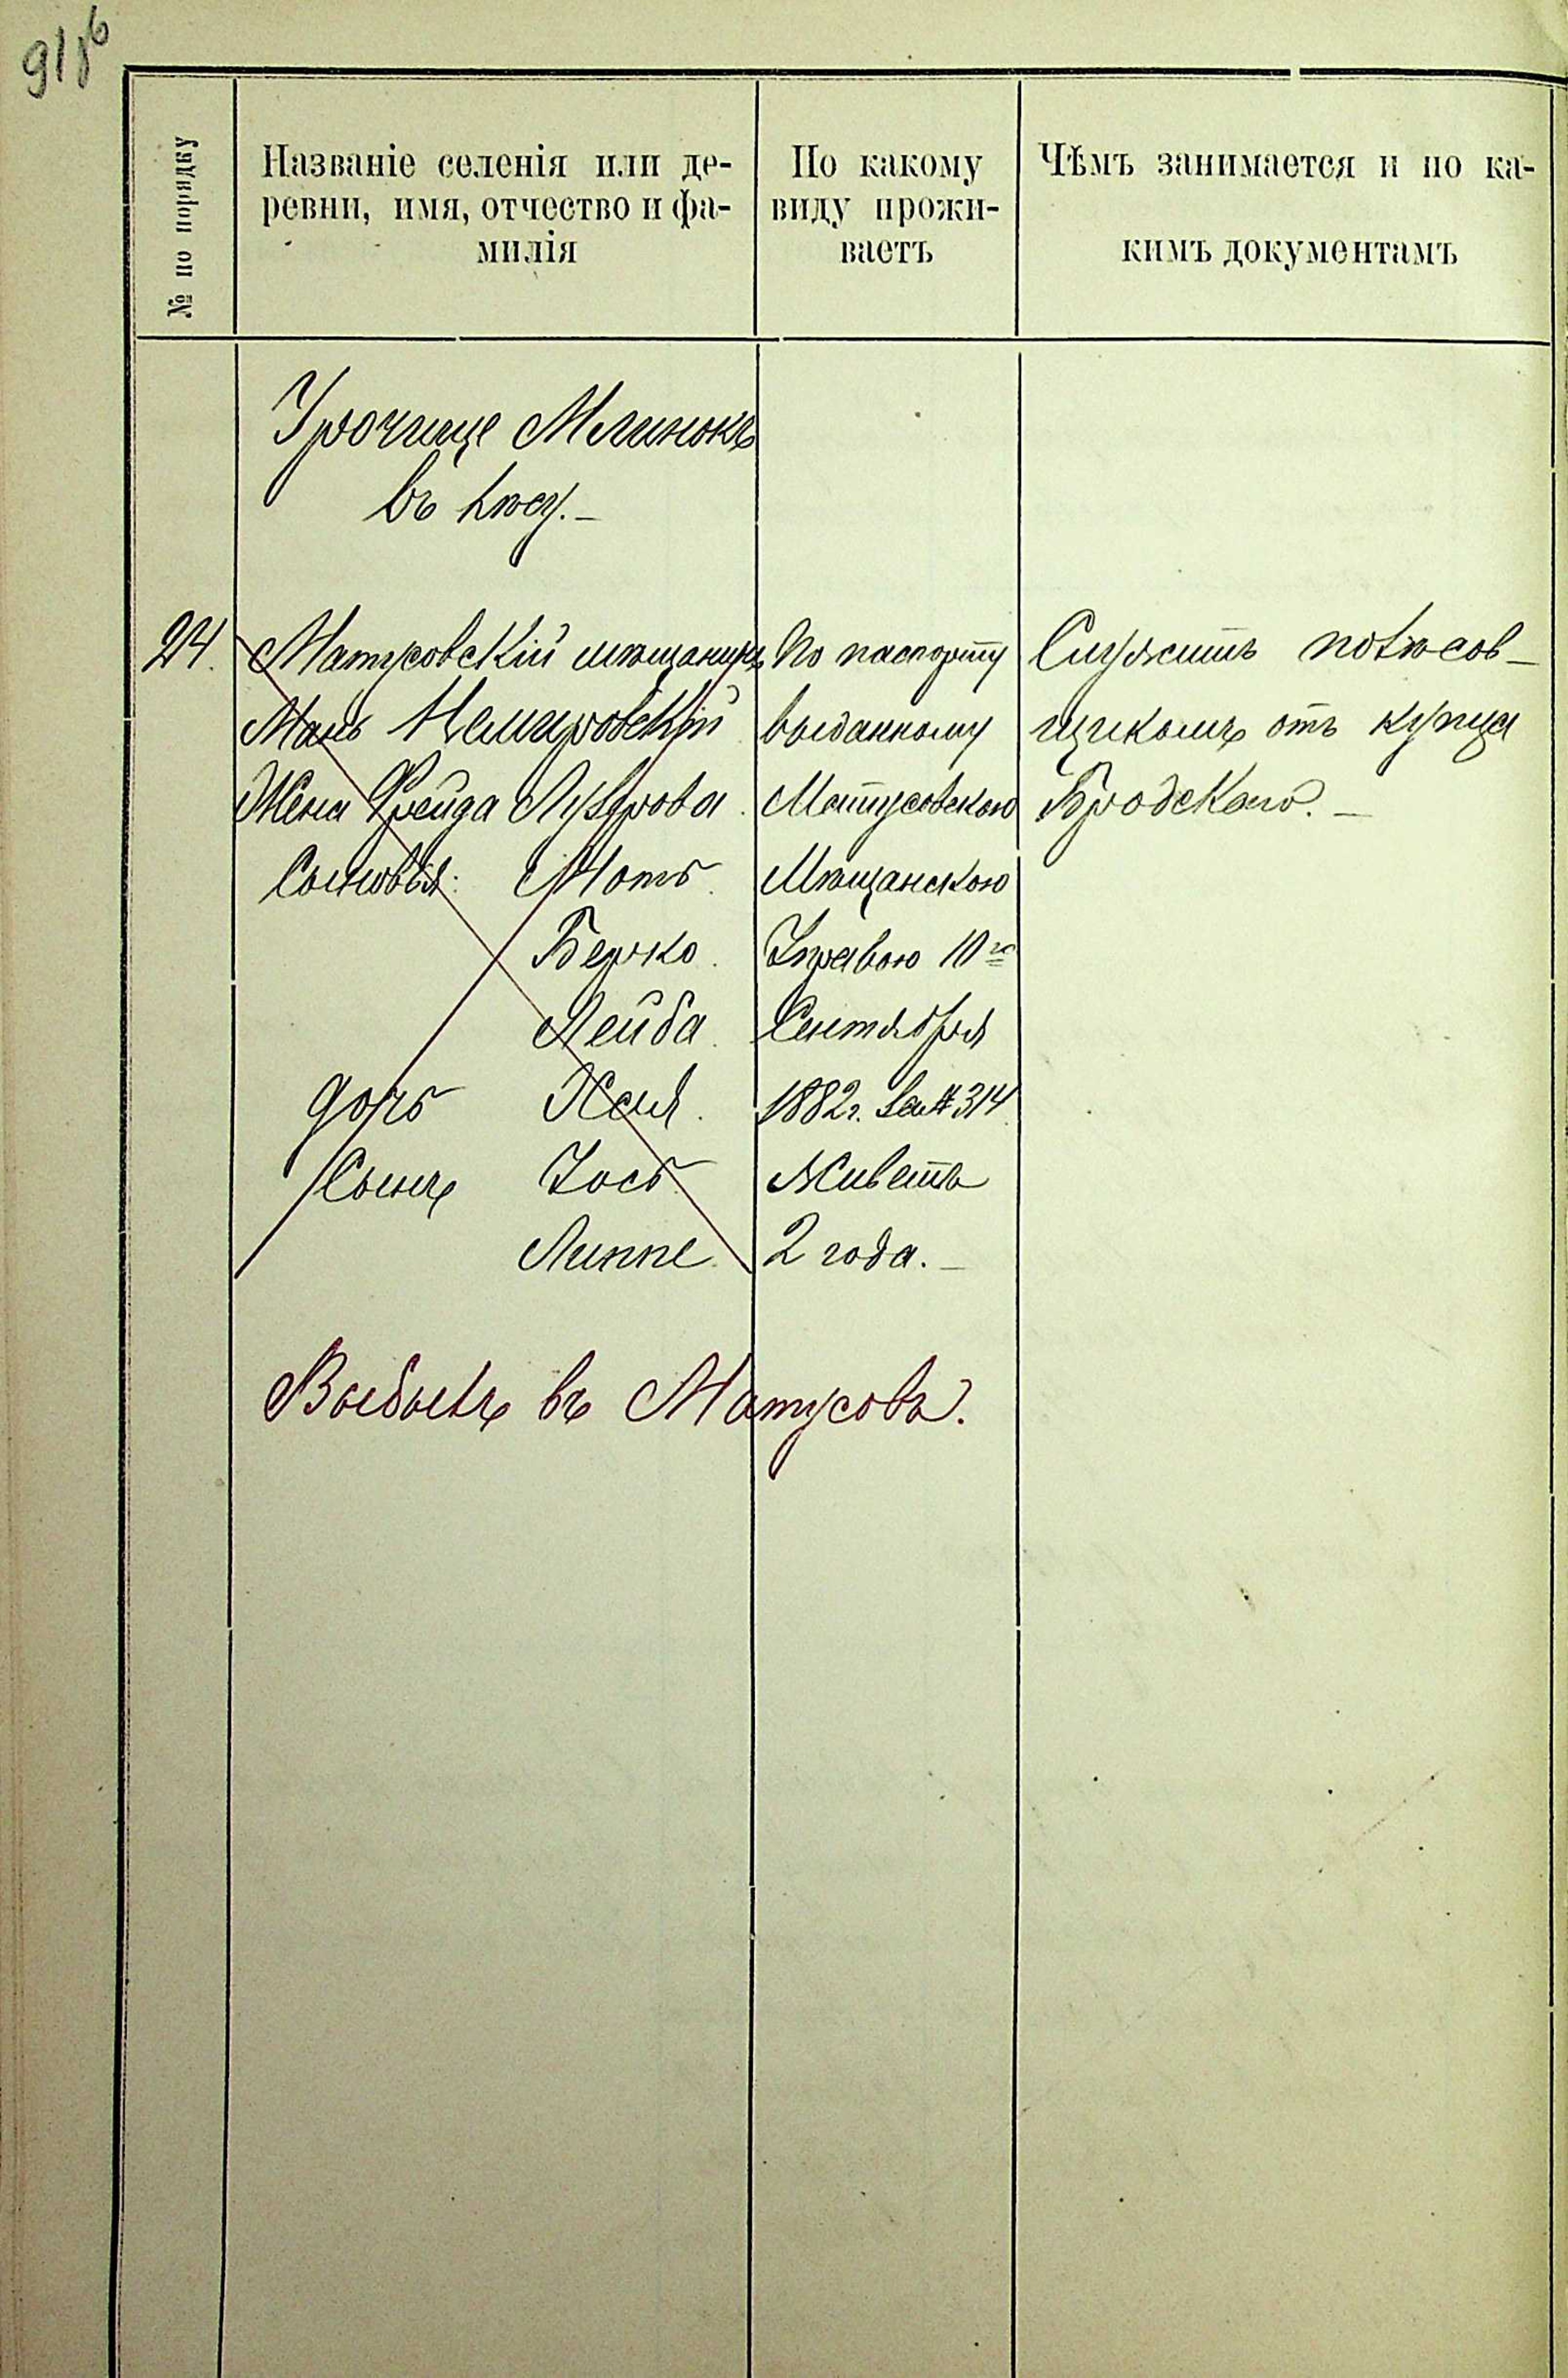 91об
№ по порядку
Названіе селенія или де-
ревни, имя, отчество и фа-
милія
По какому
виду прожи-
ваетъ
Чѣмъ занимается и по ка-
кимъ документамъ
Урочище Млинокъ
въ лѣсу.—
24.
Матусовскій мѣщанинъ
Мань Немировскій
Жена Фрейда Лузерова.
Сыновья: Моть.
Берко.
Лейба.
дочь Хая.
Сынъ Іось
Липпе.
По паспорту
выданному
Матусовскою
Мѣщанскою
Управою 10го
Сентября
1882 г. за № 314
Живетъ
2 года.—
Служитъ полѣсов-
щикомъ отъ купца
Бродскаго.—
Выбылъ въ Матусовъ.